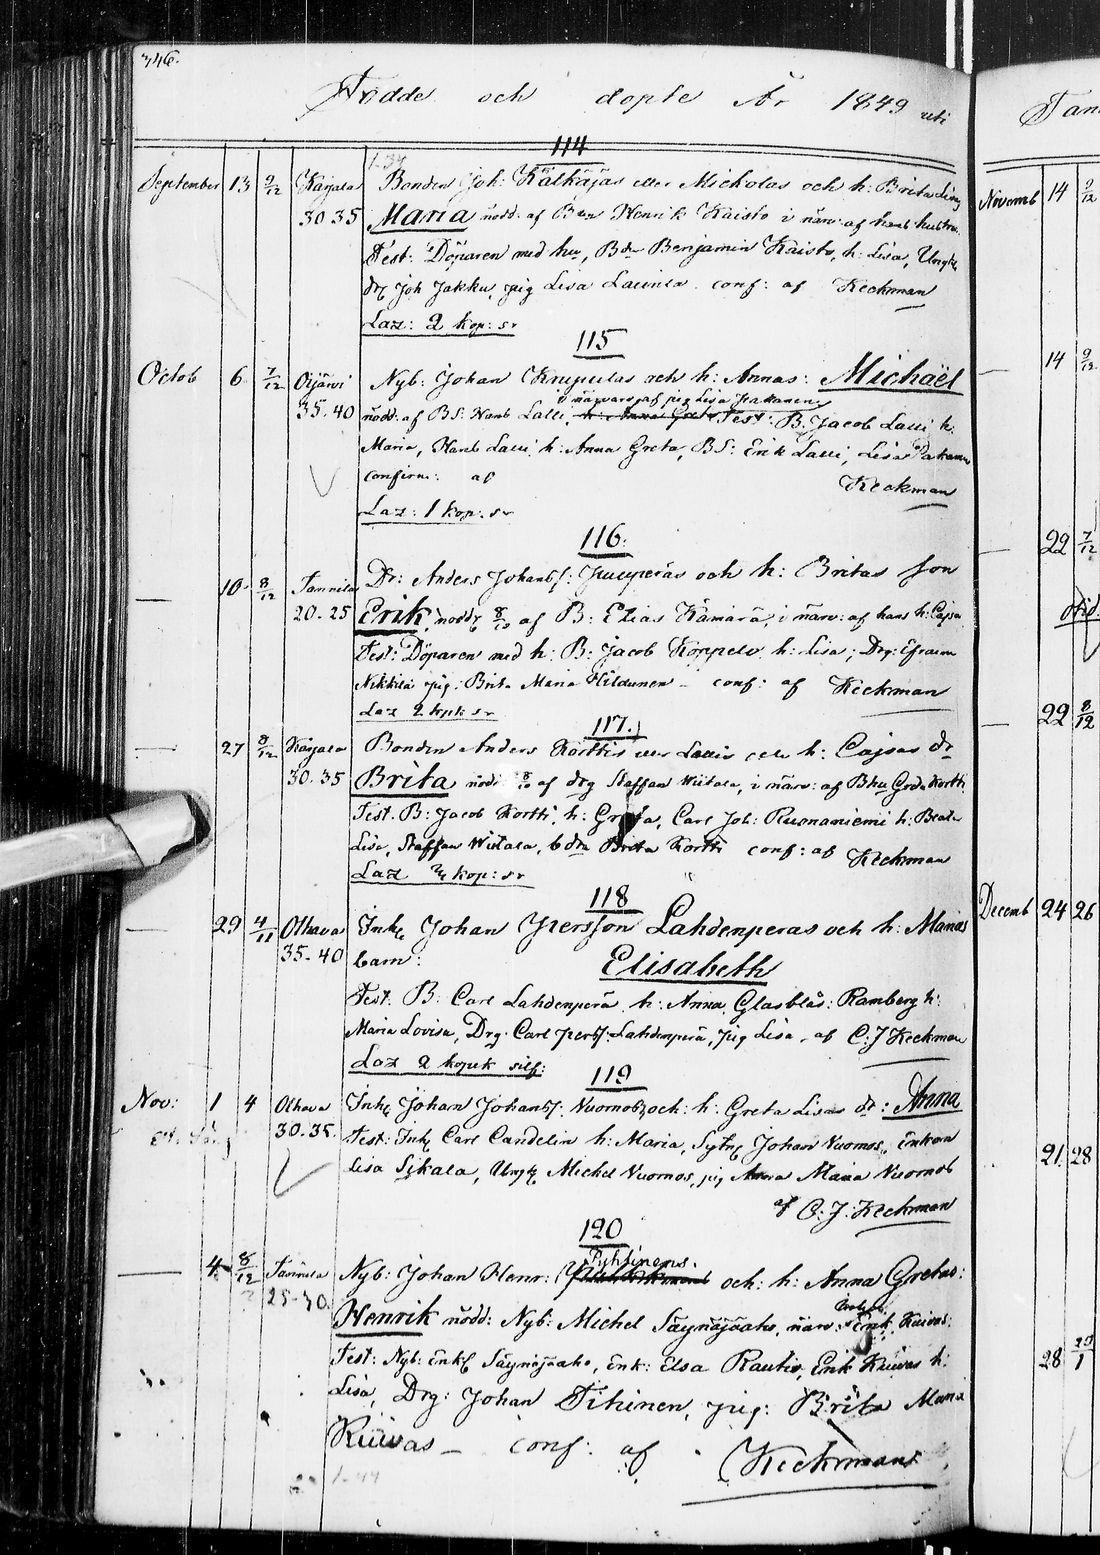 346.
Födde och döpte År 1849 uti
114
September 13 9/12 Karjala Bonden Joh: Kälkäjäs eller Mickolas och h: Brita Lisas
30 35 Maria nödd. af Bdn Henrik Kaisto i närv: af hans hustru.
Test: Döparen med hu, Bdn Benjamin Kaisto, h: Lisa,
drg Joh Jakku, pig Lisa Launila. conf: af Keckman
Laz: 2 kop: sr
115
Octob 6 7/12 Oijärvi Nyb: Johan Krupulas och h: Annas: Michaël
i närvaro af pig Lisa Pakanen
35.40 nödd. af BS: Hans Lalli, h: Anna Greta Test: B. Jacob Lalli h:
Maria, Hans Lalli h: Anna Greta, BS: Erik Lalli, Lisa Pakanen
confirm: af Keckman
Laz: 1 kop: sr
116.
10 8/12 Tannila Dr: Anders Johans: och h: Britas son
20-25 Erik, nödd 8/10 af B: Elias Kämärä, i närv: af hans h: Cajsa
Test: Döparen med h: B: Jacob Koppelo h: Lisa; Drg: Efraim
Nikkilä pig: Brita Maria Hildunen - conf: af Keckman
Laz 2 kpk sr
117.
27 8/12 Karjala Bonden Anders Korttis eller Lallis och h: Cajsas dr
30.35 Brita nödd 28/10 af drg Staffan Wiitala, i närv: af Bhu Greta Kortti
Test. B: Jacob Kortti, h: Greta, Carl Joh: Rusnaniemi h: Beata
Lisa, Staffan Wiitala, bdtr Brita Kortti conf: af Keckman
Laz kop: sr
118
29 4/11 Olhava Inh Johan Persson Lahdenperas och h: Marias
35-40 barn: Elisabeth
Test: B: Carl Lahdenperä h: Anna, Glasblås: Ramberg h:
Maria Lovisa, Drg. Carl Perss: Lahdenperä, pig Lisa, af C. J Keckman
Laz 2 kopek silf:
119
Nov: 1 4 Olhava Inh Johan Johans: Vuornos och: h: Greta Lisas dr: Anna
30.35. Test: Inh Carl Candelin h: Maria, Sytn Johan Vuornos, Enkan
Lisa Sikala, Michel Vuornos, pig Anna Maria Vuornos
af C: J. Keckman
120
Pyhtinens.
4 8/12 Tannila Nyb: Johan Henr: och: h: Anna Gretas:
25-30. Henrik nödd: Nyb: Michel Säynäjäaho, närv: Enk. Kuivas:
Test: Nyb: Säynäjäaho, Enk: Elsa Rautio, Erik Kuivas h:
Lisa, Drg: Johan Tihinen, pig: Brita Maria
Kuivas - conf: af Keckman
1-44
Novemb 14 9/12
14 9/12
22 7/12
22 8/12
Decemb 24 26
21. 28
28